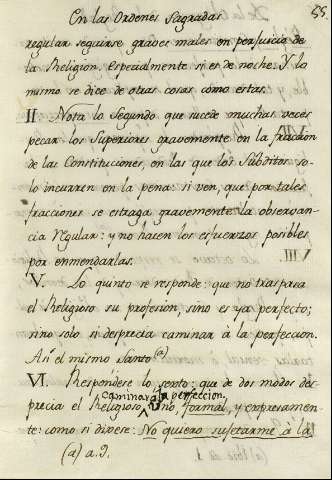 En las Ordenes Sagradas 55.
regular seguirse graves males en perjuicio de
la Religion, especialmente si es de noche. Y lo
mismo se dice de otras cosas como estas.
II. Nota lo Segundo que sucede muchas veces
pecar los Superiores gravemente en la fraccion
de las Constituciones, en las que los Súbditos so-
lo incurren en la pena: si ven, que por tales
fracciones se estraga gravemente la observan-
cia regular: y no hacen los esfuerzos posibles
por enmendarlas.
V. Lo quinto se responde: que no traspasa
el Religioso su profesion, sino es ya perfecto;
sino solo si desprecia caminar á la perfeccion.
Así el mismo Santo (a)
VI. Respóndese lo sexto: que de dos modos des-
caminar á la perfeccion.
precia el Religioso Uno, formal, y expresamen-
te: como si dixese: No quiero sujetarme á la
(a) a.2.